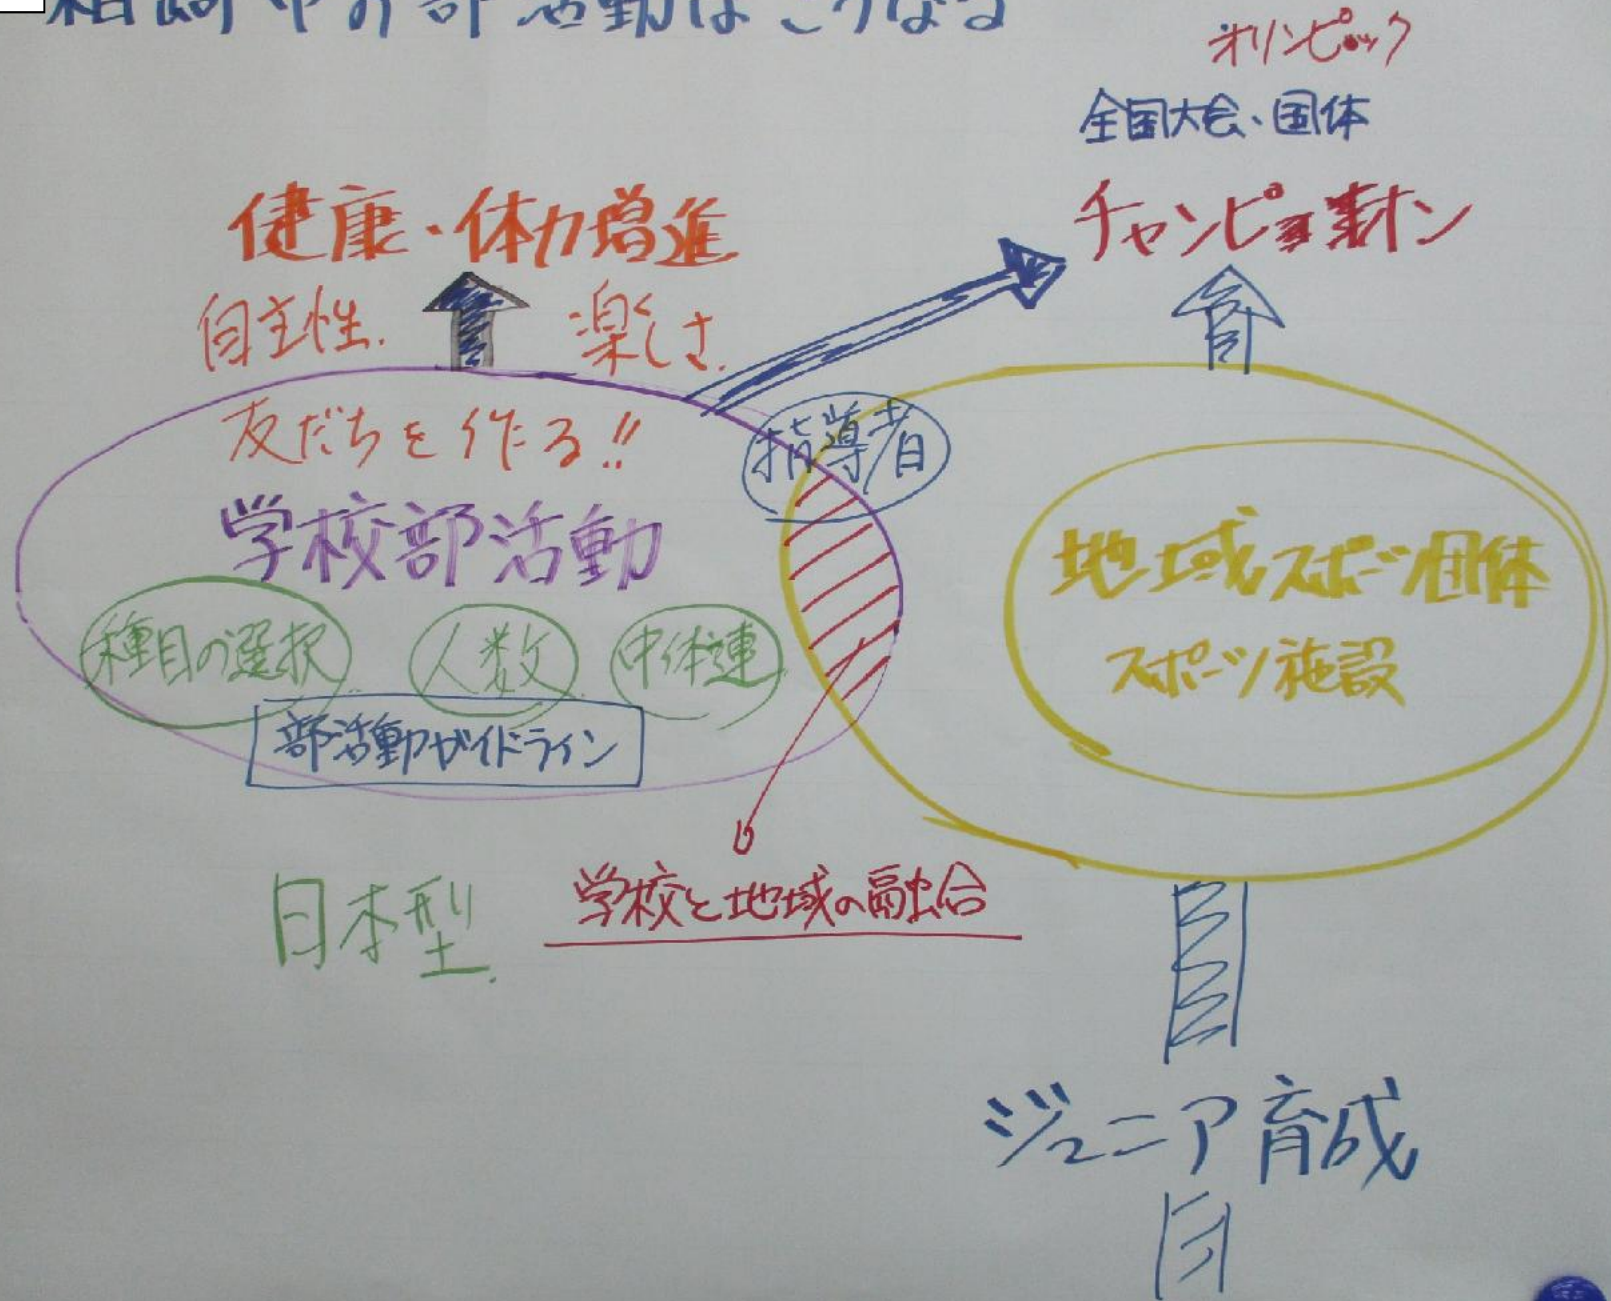 柏崎市の部活動はこうなる
オリンピック
全国大会、国体
チャンピオン
健康・体力増進
自主性.
楽しさ.
友だちを作る!!
指導者
学校部活動
種目の選択
人数
中体連
部活動ガイドライン
地域スポーツ団体
スポーツ施設
日本型.
学校と地域の融合
ジュニア育成